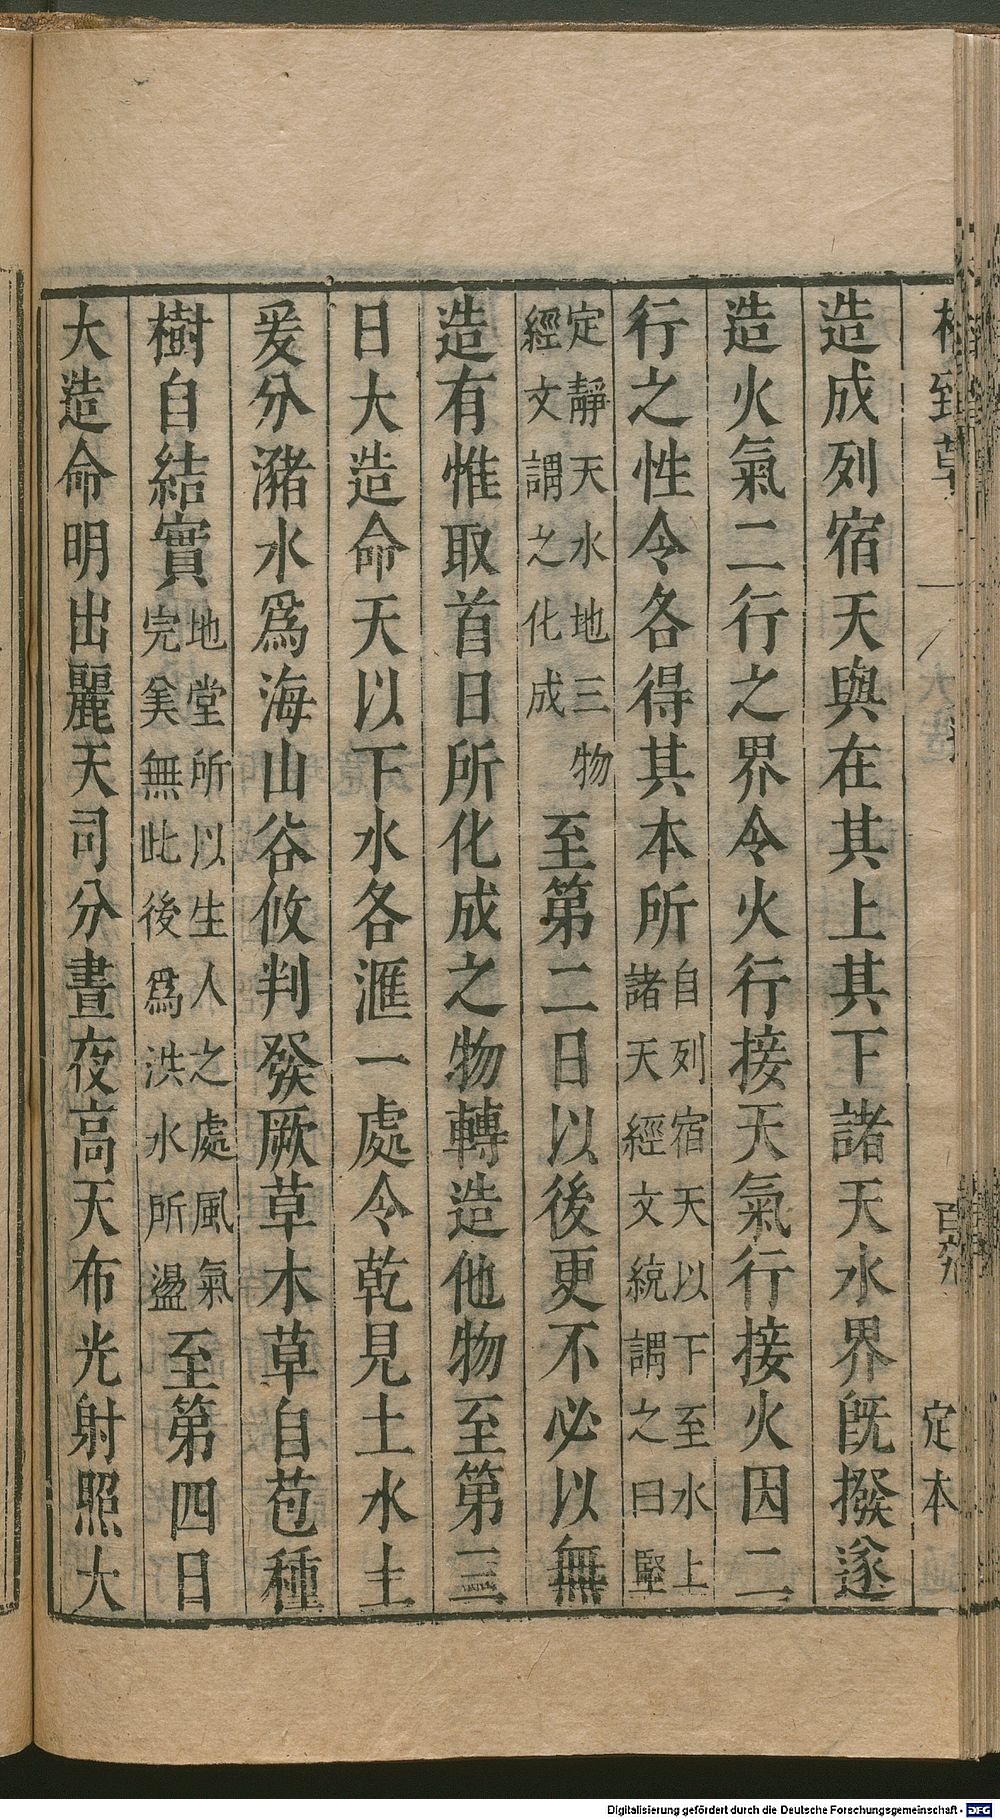 格致草
大造
百九
定本
造成列宿天與在其上其下諸天水界旣撥遂
造火氣二行之界令火行接天氣行接火因二
行之性令各得其本所自列宿天以下至水上諸天經文統謂之曰堅
定靜天水地三物經文謂之化成至第二日以後更不必以無
造有惟取首日所化成之物轉造他物至第三
日大造命天以下水各滙一處令乾見土水土
爰分瀦水爲海山谷攸判發厥草木草自苞種
樹自結實地堂所以生人之處風氣完美無此後爲洪水所盪至第四日
大造命明出麗天司分晝夜高天布光射照大
Digitalisierung gefördert durch die Deutsche Forschungsgemeinschaft - DFG